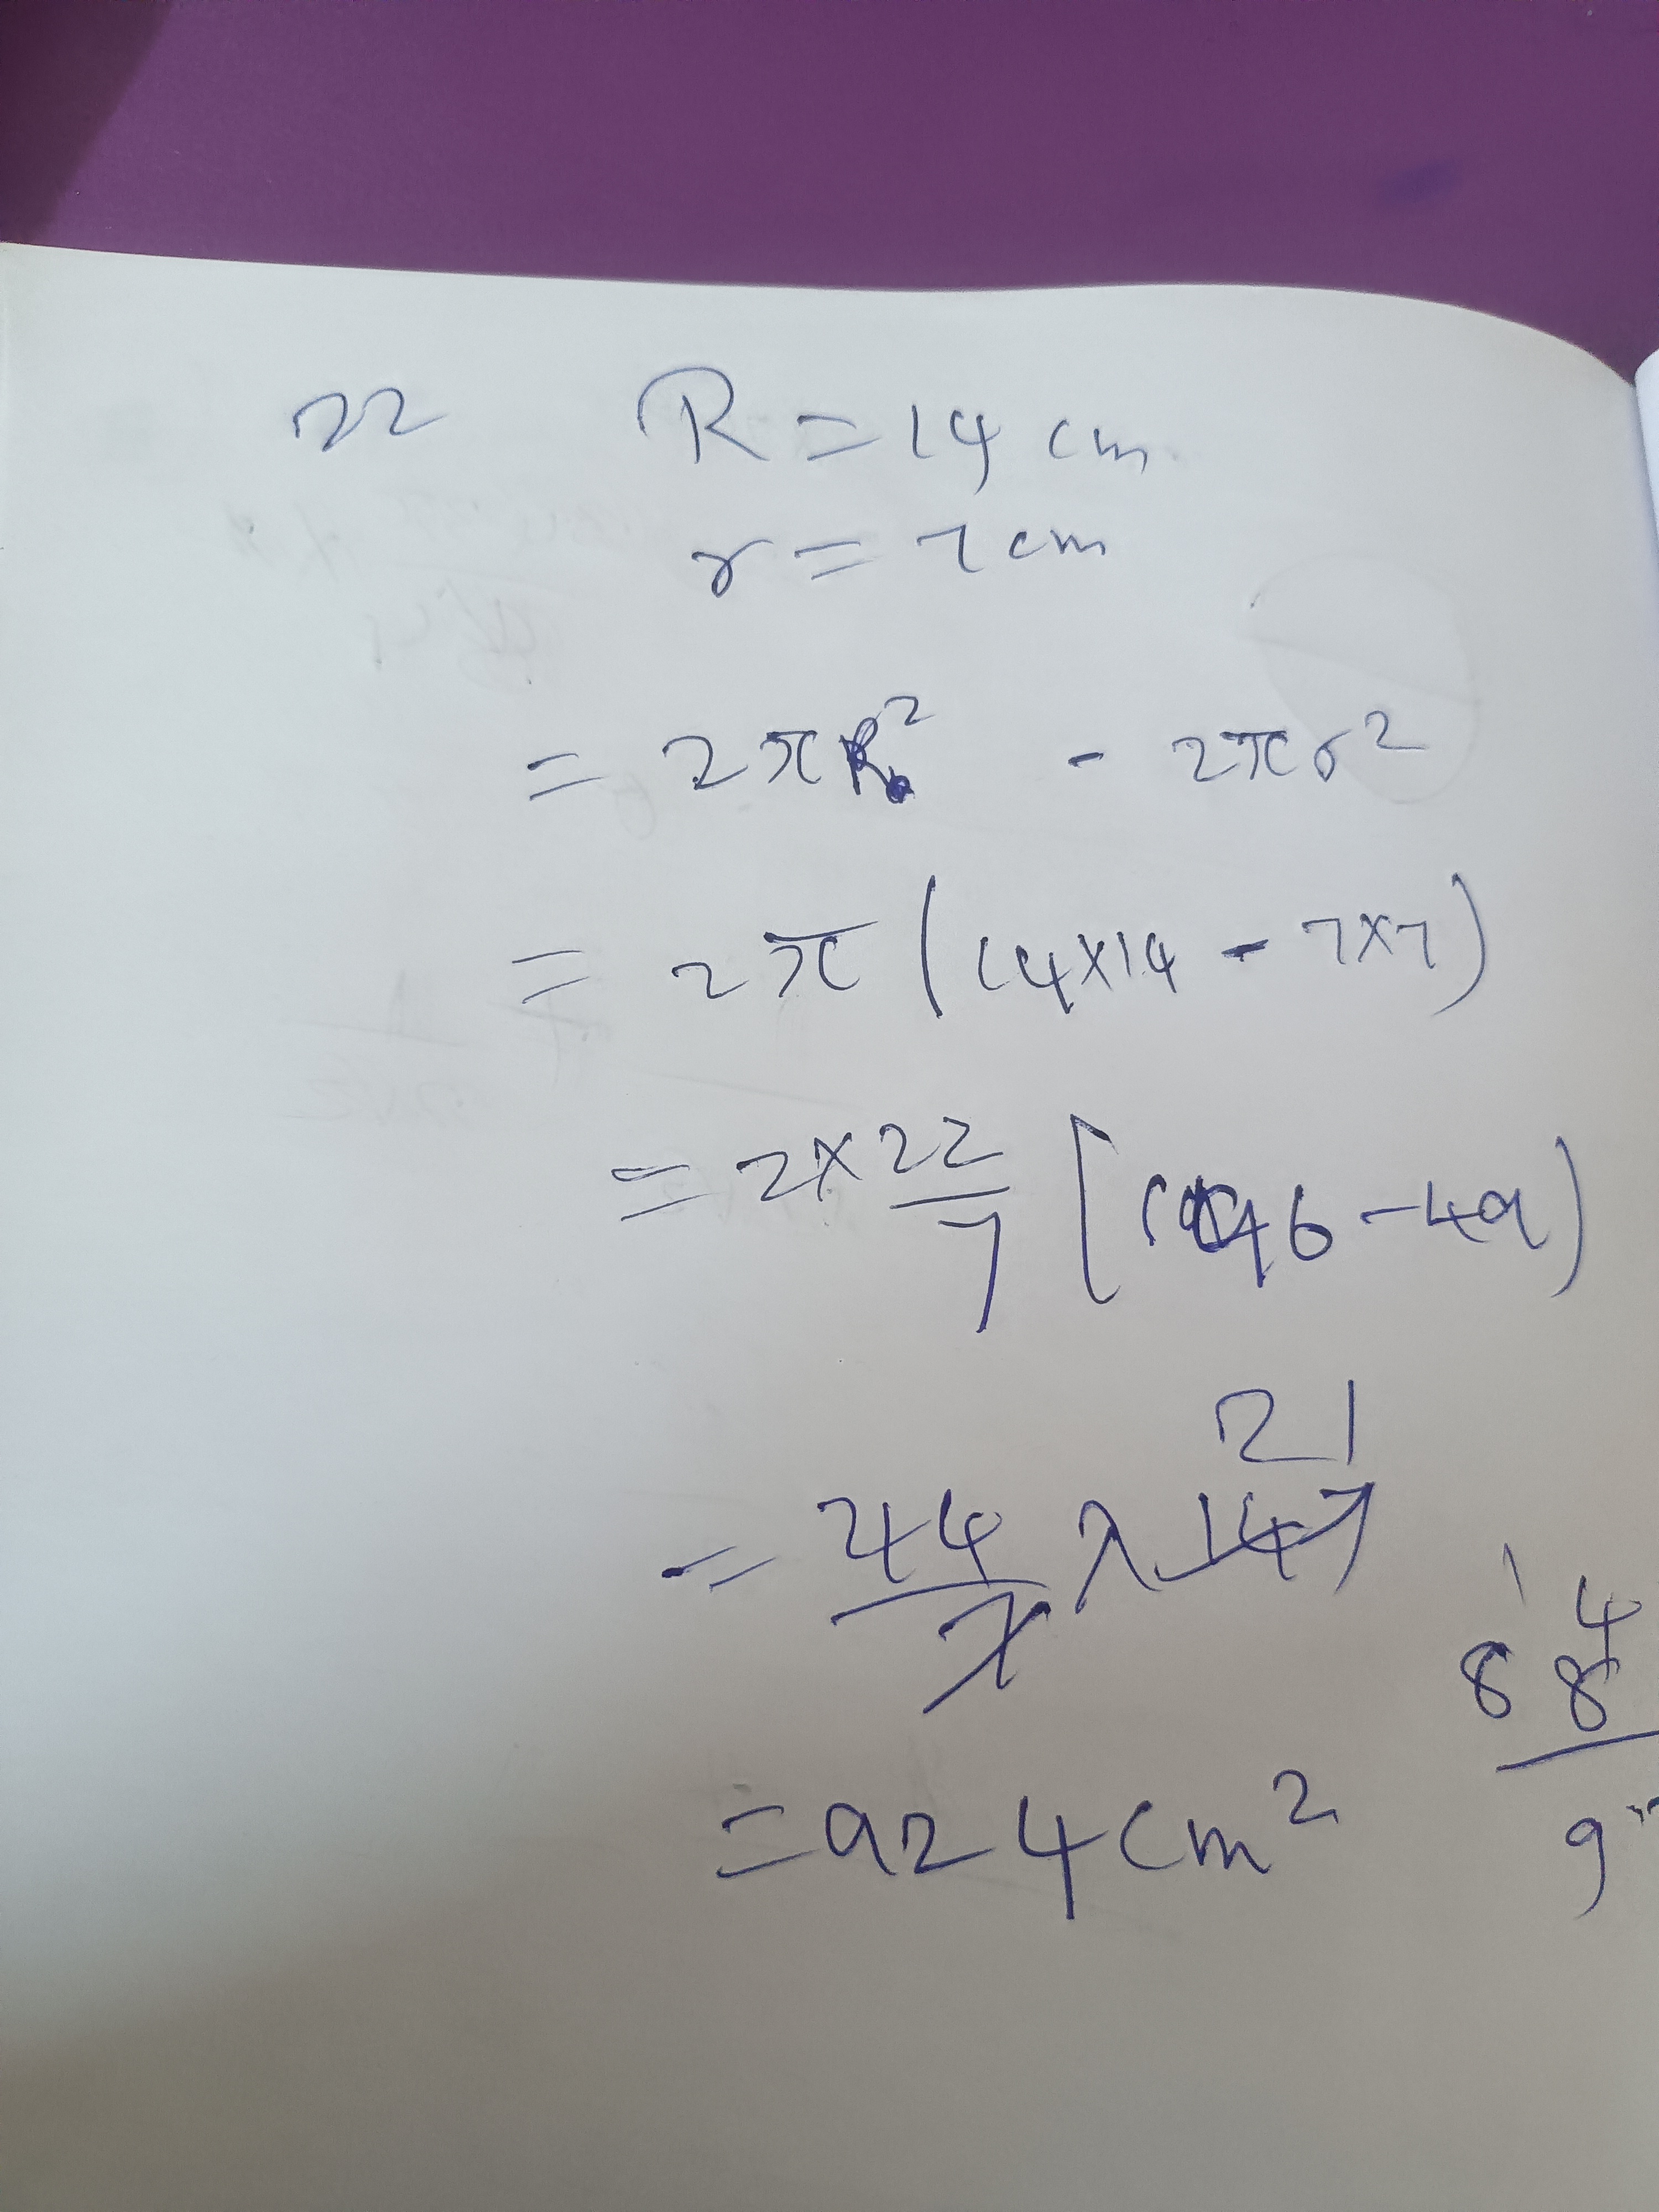 22 R = 14 cm
r = 7 cm
= 2πR² - 2πr²
= 2π (14×14 - 7×7)
= 2×22/7 [196 - 49)
21
= 44/7 × 147
1
4
88
= 924 cm² 9